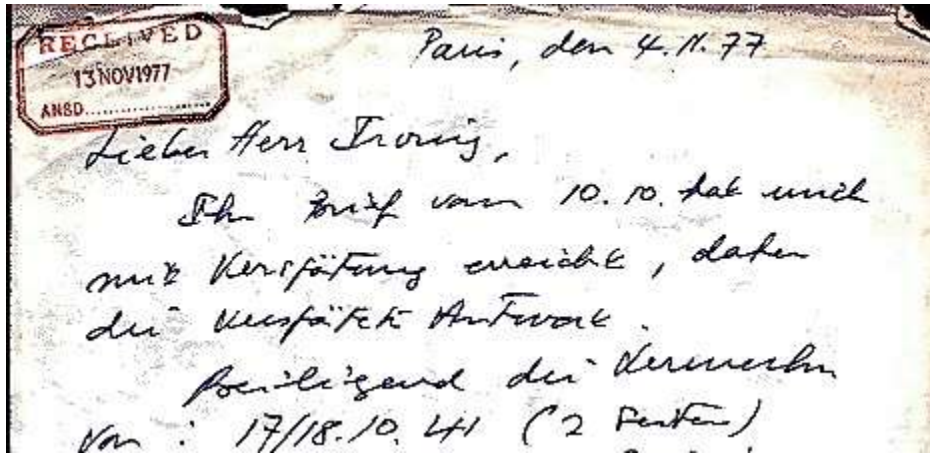 RECEIVED
13 NOV 1977
ANSD..................
Paris, den 4.11.77
Lieber Herr Irving,
Ihr Brief vom 10.10. hat mich
mit Verspätung erreicht, daher
die verspätete Antwort.
Beiliegend die Vermerke
von : 17/18.10.41 (2 Seiten)